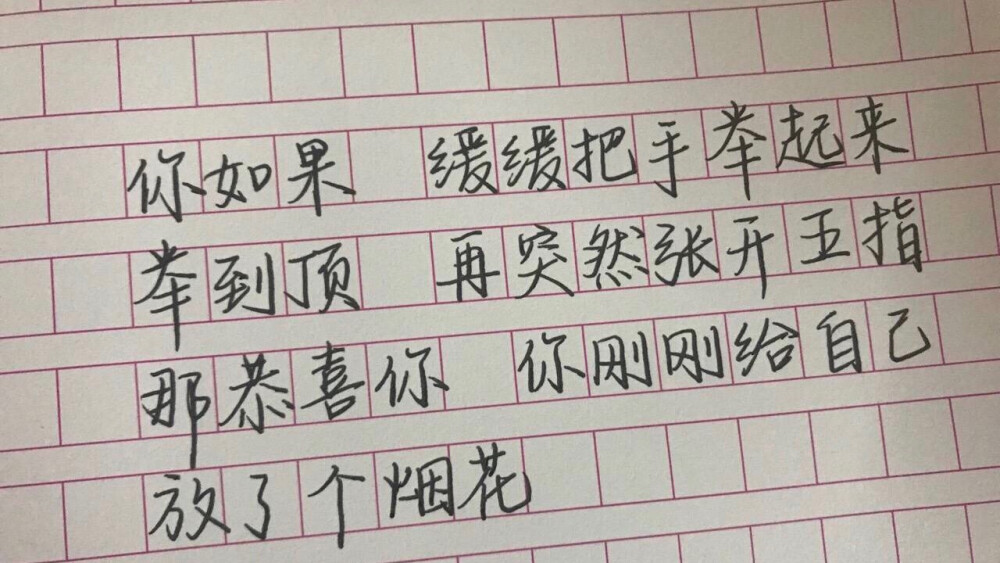 你如果 缓缓把手举起来
举到顶 再突然张开五指
那恭喜你 你刚刚给自己
放了个烟花